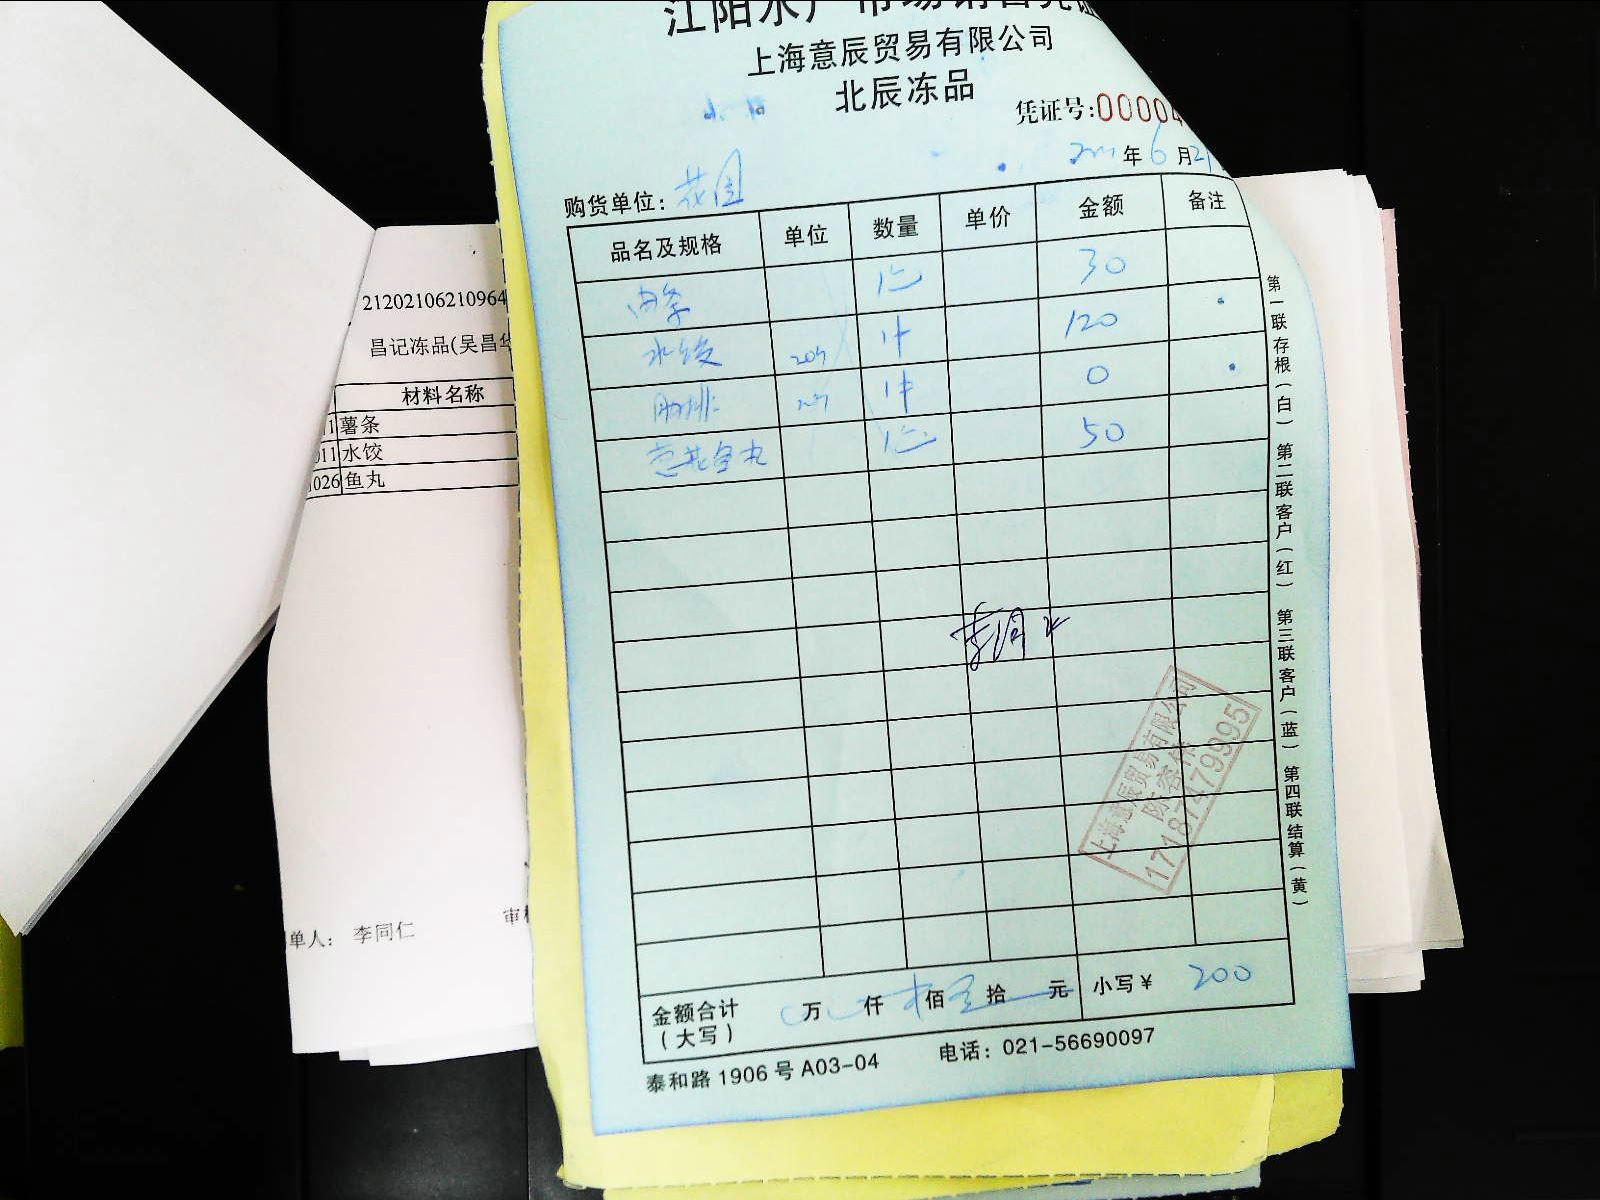 江阳水产市场销售凭证
上海意辰贸易有限公司
北辰冻品
凭证号:0000
年 6 月 21
购货单位: 花园
品名及规格 单位 数量 单价 金额 备注
30
水饺 1件 120
肋排 1件 0
鱼丸 50
金额合计 (大写) 万 仟 佰 拾 元 小写¥ 200
泰和路1906号A03-04 电话: 021-56690097
第一联存根(白) 第二联客户(红) 第三联客户(蓝) 第四联结算(黄)
上海意辰贸易有限公司
17187479995
21202106210964
昌记冻品(吴昌华
材料名称
薯条
011 水饺
026 鱼丸
单人: 李同仁
审核